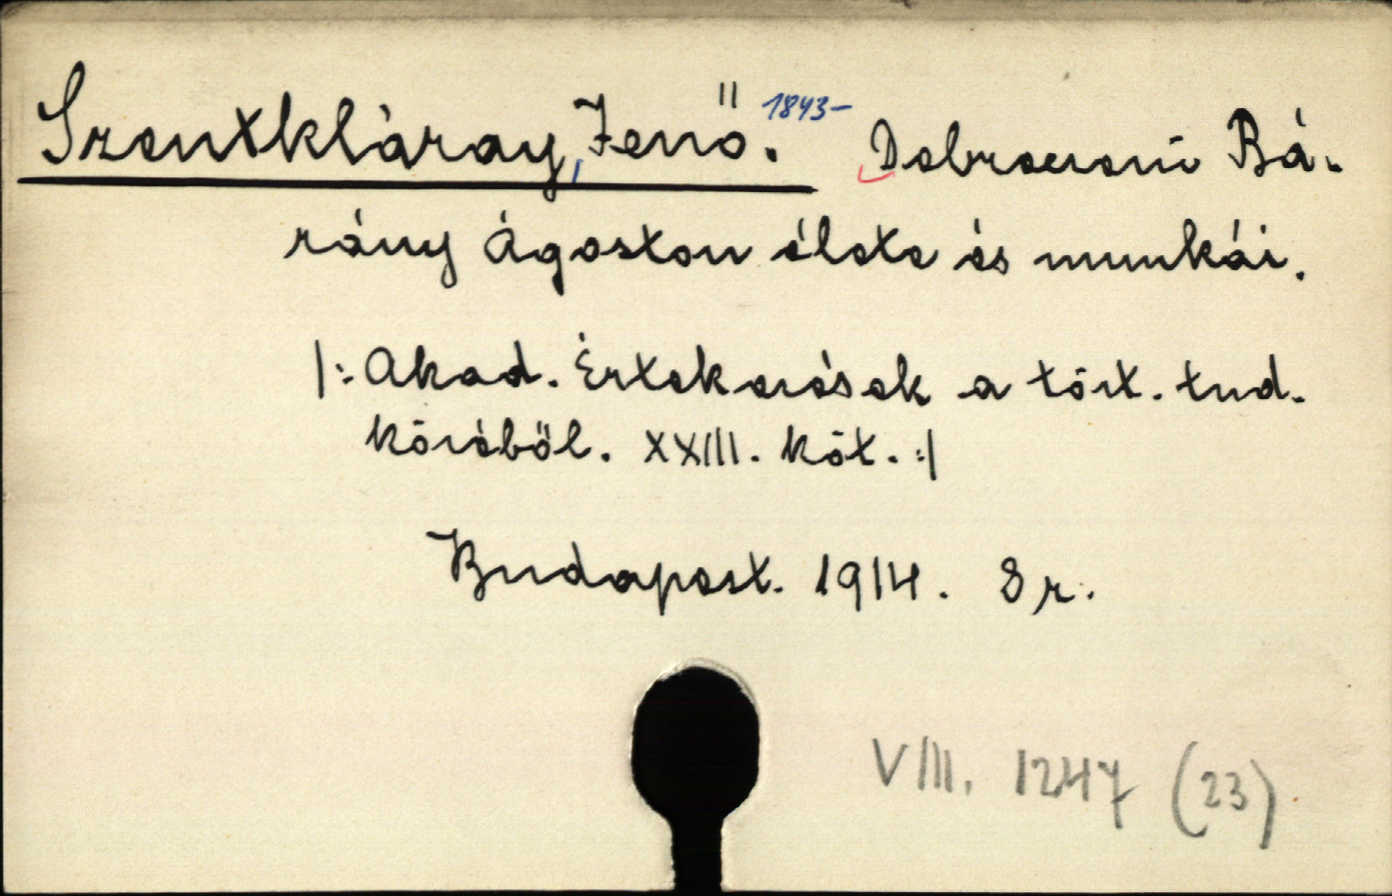 Szentkláray, Jenő. 1843- Debreceni Bá-
rány Ágoston élete és munkái.
|: Akad. Értekezések a tört. tud.
köréből. XXIII. köt. :|
Budapest. 1914. 8 r.
VIII. 1247 (23)